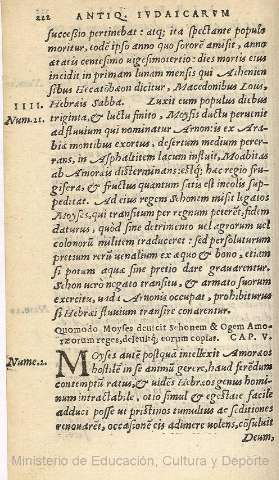 222 ANTIQ. IVDAICARVM
successio pertinebat: atq; ita spectante populo
moritur, eodē ipso anno quo sororē amisit, anno
ætatis centesimo vigesimotertio: dies mortis eius
incidit in primam lunam mensis qui Atheniensibus
Hecatōbaeon dicitur, Macedonibus Lous,
IIII. Hebræis Sabba. Luxit eum populus diebus
Num.21. triginta, & luctu finito, Moysis ductu peruenit
ad fluuium qui nominatur Arnon: is ex Arabiæ
montibus exortus, desertum medium pererrans,
in Asphaltitem lacum influit, Moabitas
ab Amoræis disterminans: estq; hæc regio frugifera,
& fructus quantum satis est incolis suppeditat.
Ad eius regem Schonem misit legatos
Moyses, qui transitum per regnum peteret, fidem
daturus, quòd sine detrimento vel agrorum vel
colonorū militem traduceret: sed persoluturum
pretium rerū venalium ex æquo & bono, etiam
si potum aquæ sine pretio dare grauarentur.
Schon verò negato transitu, & armato suorum
exercitu, vada Arnonis occupat, prohibiturus
si Hebræi fluuium transire conarentur.
Quomodo Moyses deuicit Schonem & Ogem Amorræorum
reges, deleuitq; eorum copias. CAP. V.
Nume.2. MOyses autē postquā intellexit Amoræos
hostilē in se animū gerere, haud ferēdum
contemptū ratus, & vides Hebræos genus hominum
intractabile, otio simul & egestate facile
adduci posse vt pristinos tumultus ac seditiones
renouarēt, occasionē eis adimere volens, cōsuluit
Deum,
Ministerio de Educación, Cultura y Deporte